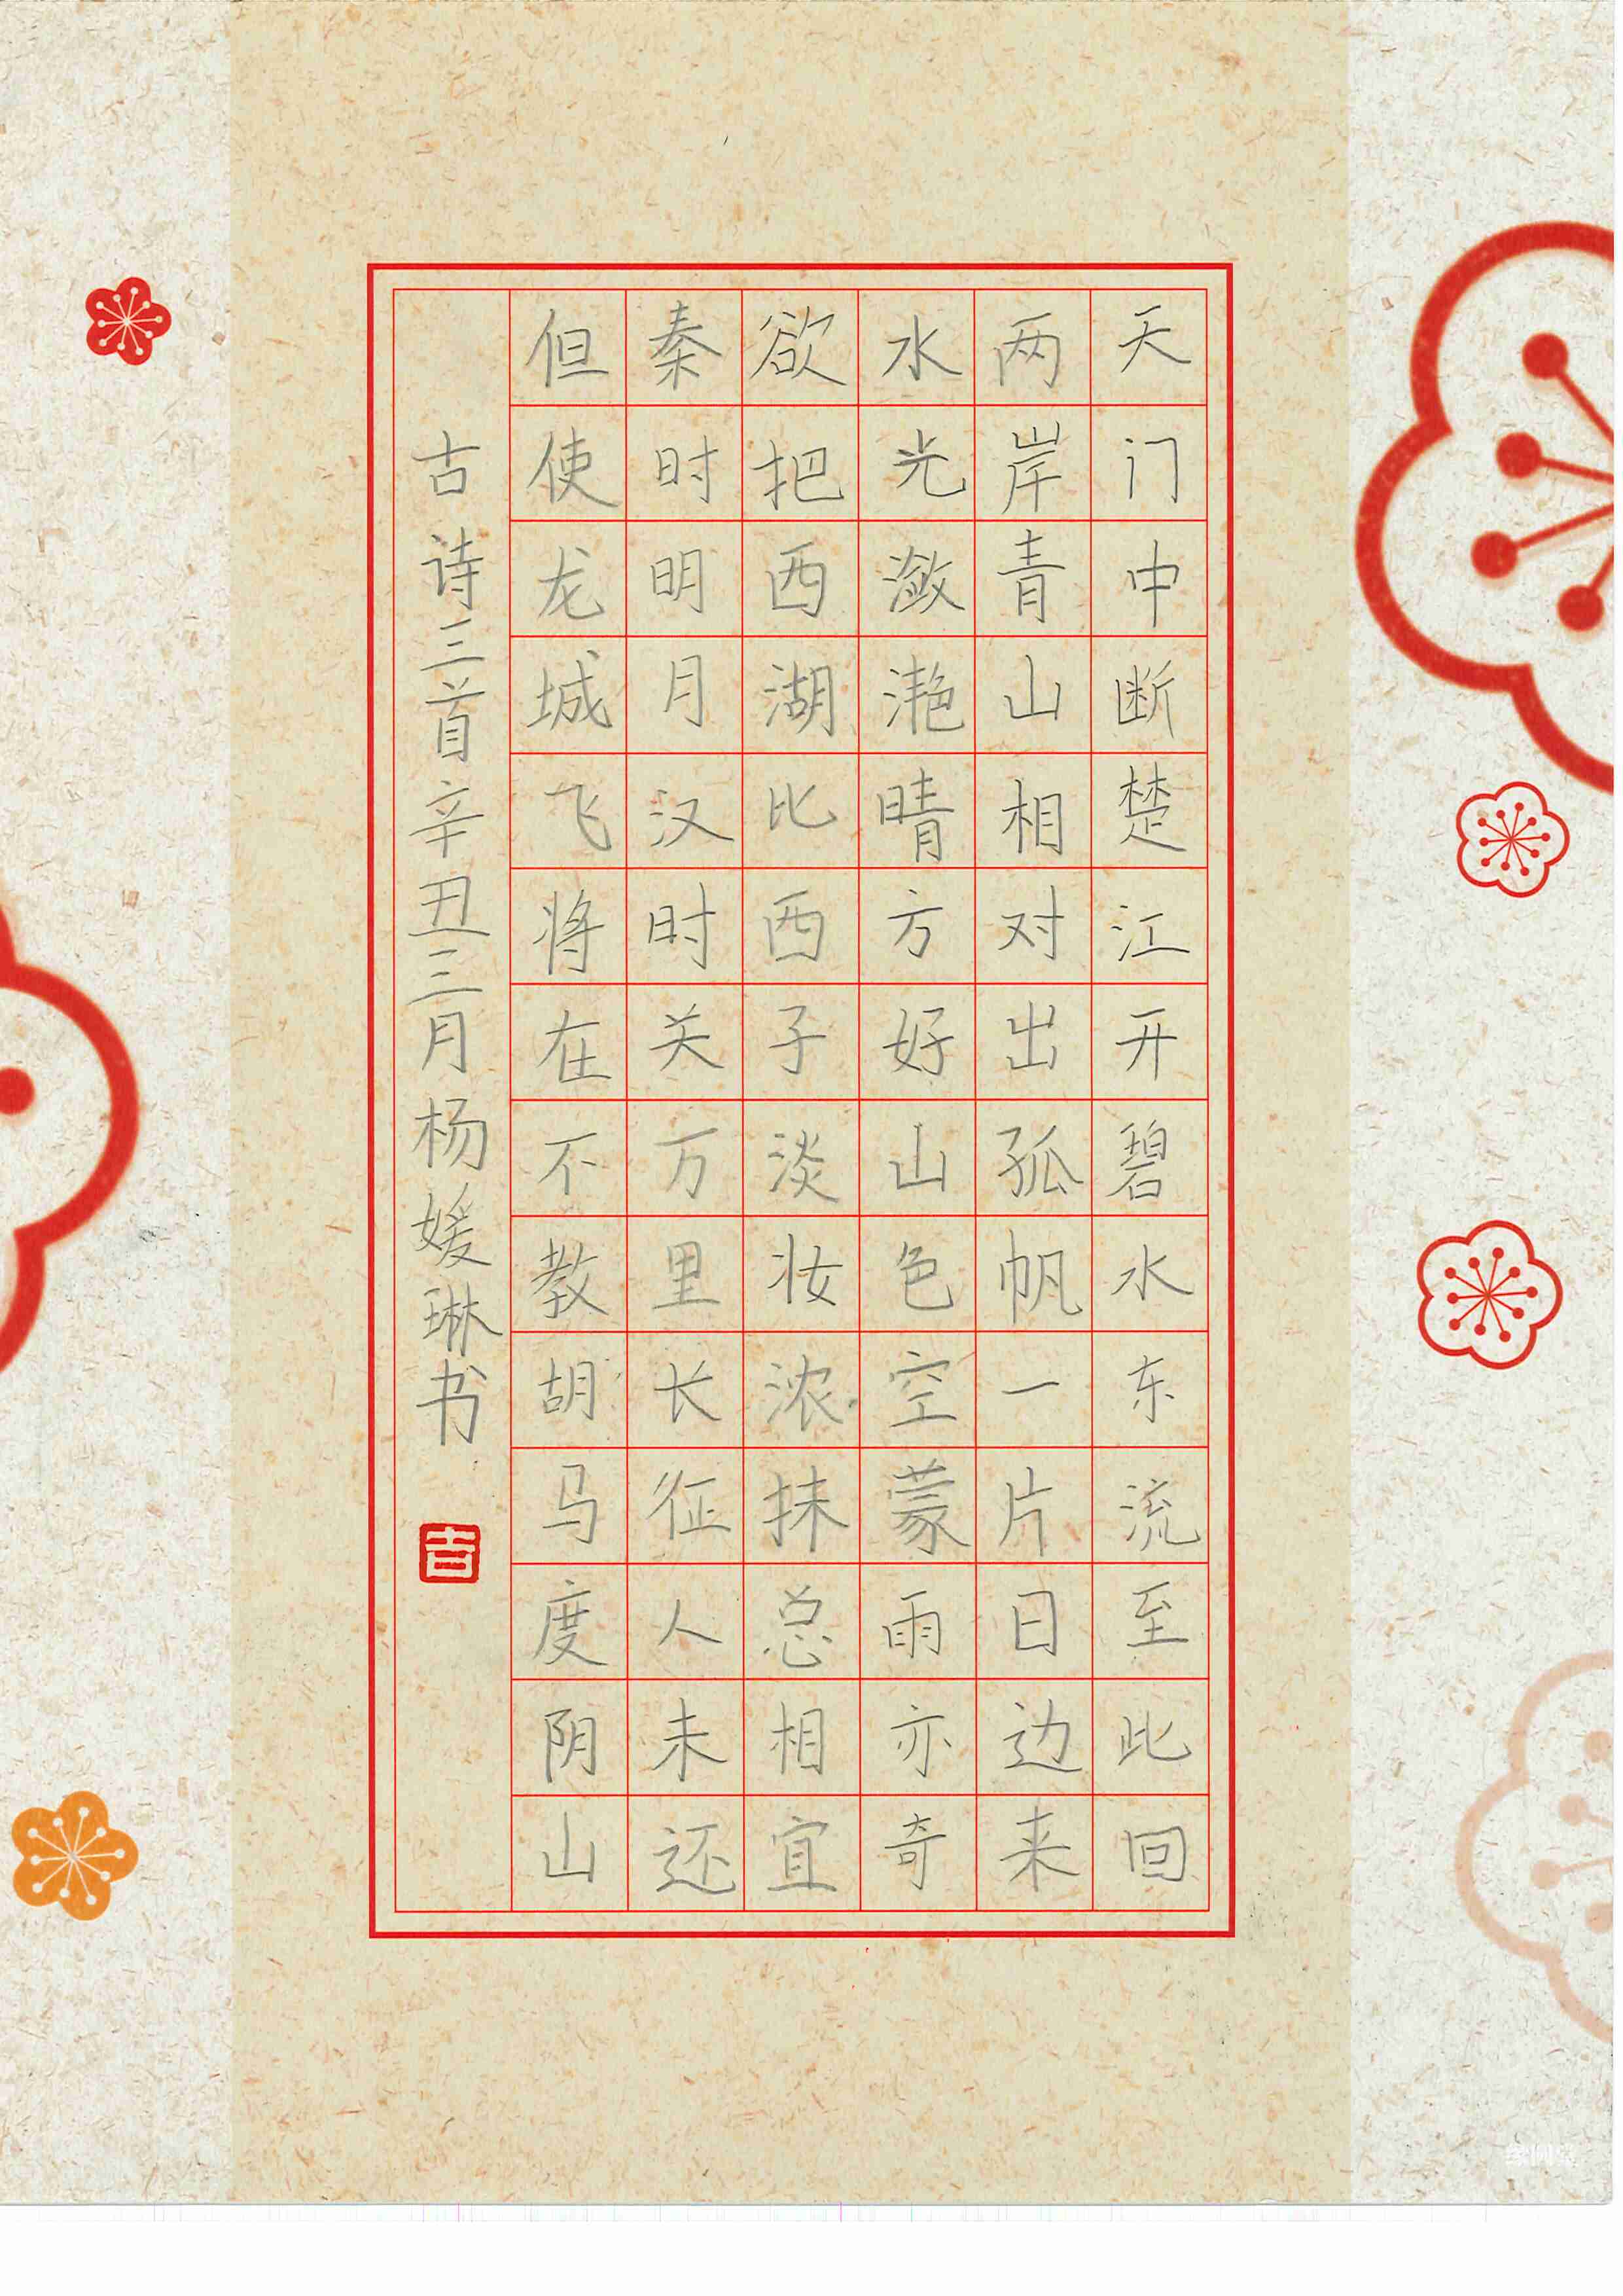 天门中断楚江开碧水东流至此回
两岸青山相对出孤帆一片日边来
水光潋滟晴方好山色空蒙雨亦奇
欲把西湖比西子淡妆浓抹总相宜
秦时明月汉时关万里长征人未还
但使龙城飞将在不教胡马度阴山
古诗三首辛丑三月杨媛琳书
吉